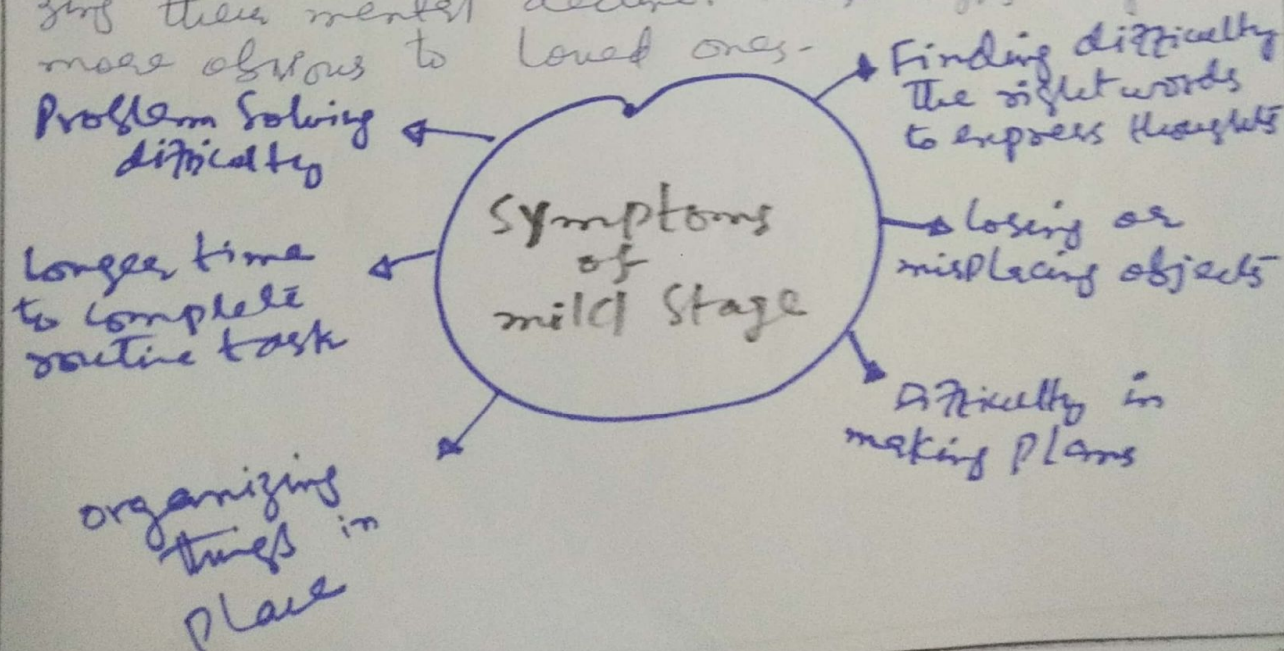 their mental
more obvious to Loved ones-
Problem Solving
difficulty
Longer time
to complete
routine task
organizing
things in
place
Symptoms
of
mild Stage
Finding difficulty
The right words
to express thoughts
Losing or
misplacing objects
Difficulty in
making plans